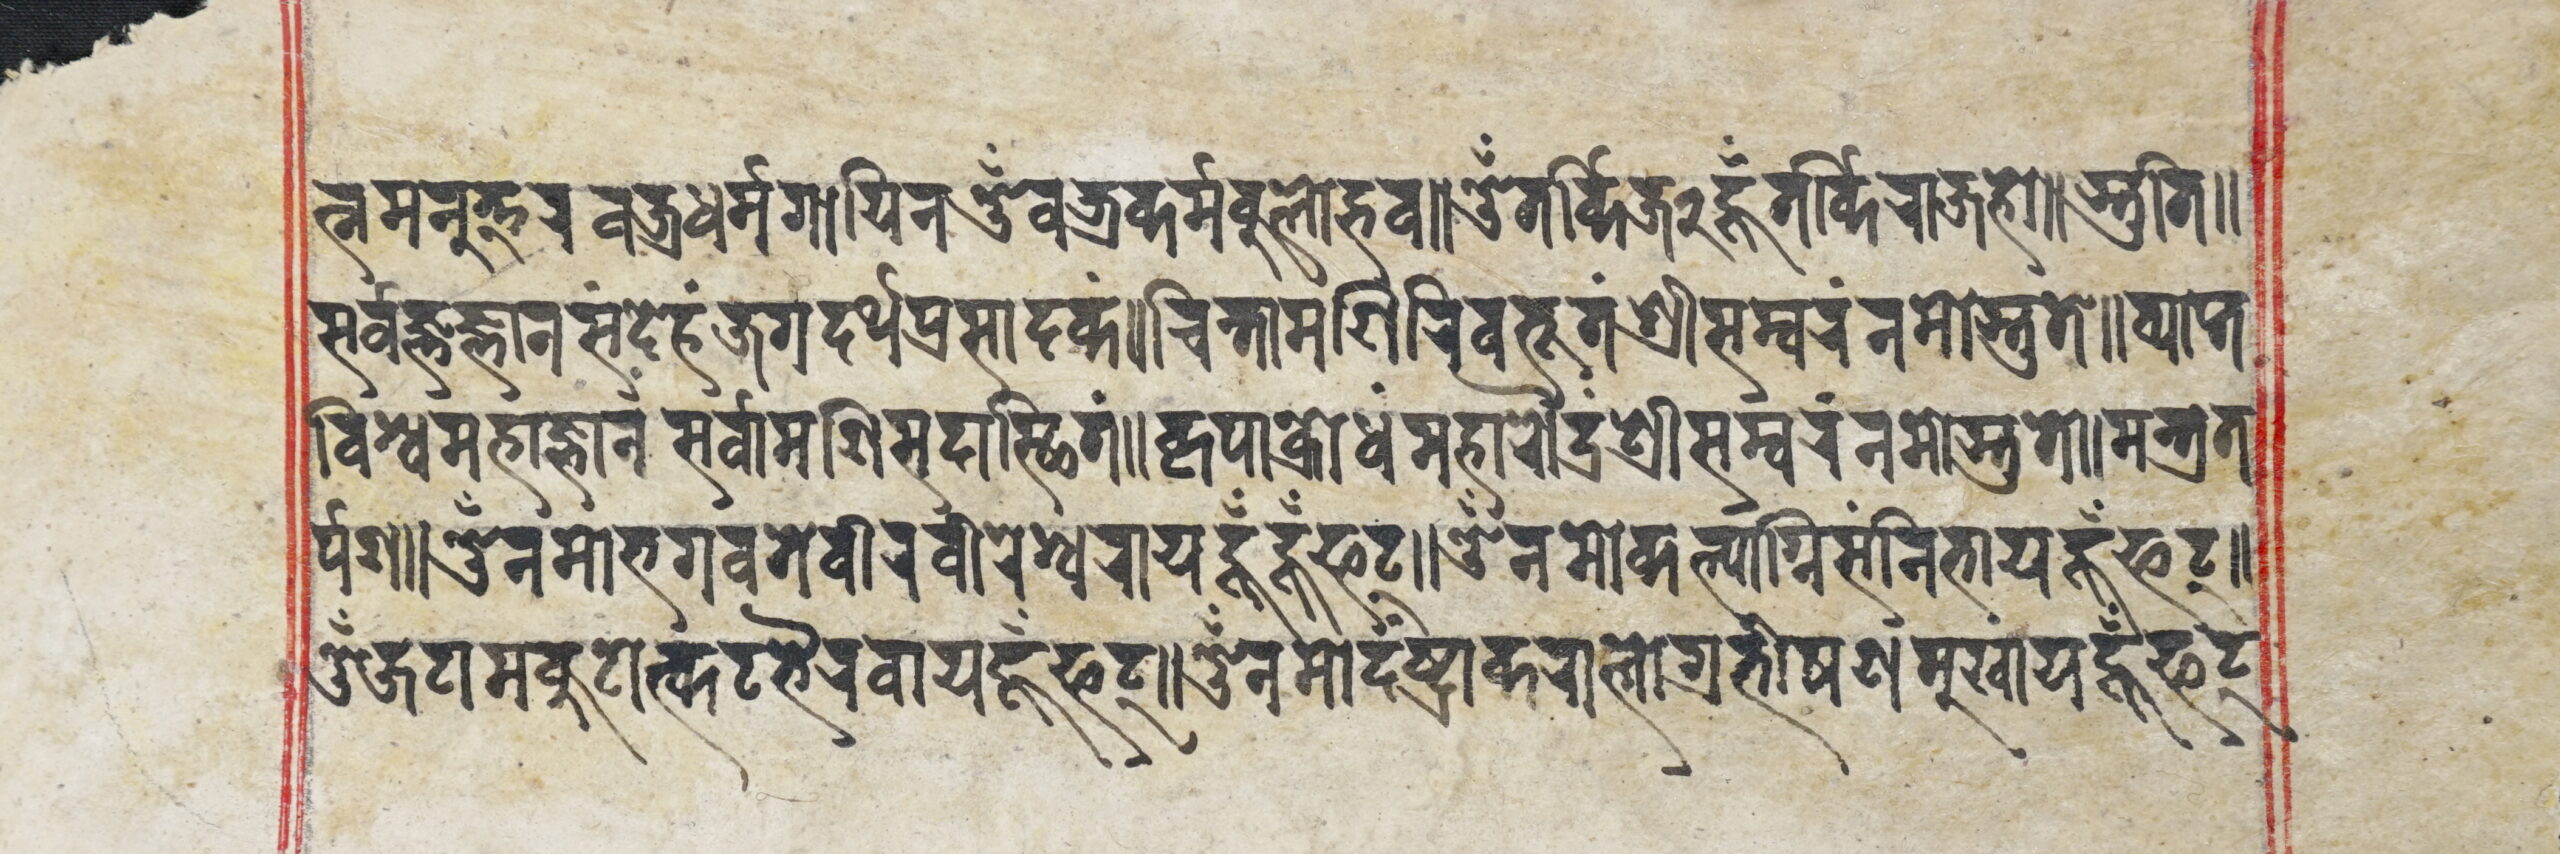 त्नमनुत्तर वज्रधर्मगायिन ॐवज्रकर्मकुलोद्भव॥ॐतर्क्किजः२हूँतर्क्किराजहोः॥स्तुति॥
सर्वज्ञज्ञानसंदोहं जगदर्थप्रसादकं॥चिन्तामणिरिवद्भूतं श्रीसम्वरं नमोस्तुते॥व्याप्त
विश्वमहाज्ञानं सर्वात्मणि सदास्थितं॥कृपाक्रोधं महारौद्रं श्रीसम्वरं नमोस्तुते॥मन्त्रत
र्पण॥ॐनमोभगवते वीरवीरेश्वराय हूँहूँफट्॥ॐनमोकल्पाग्निसंनिभाय हूँफट्॥
ॐजटामकुटोत्कटभैरवाय हूँफट्॥ॐनमोदंष्ट्राकरालोग्रभीषणमुखाय हूँफट्